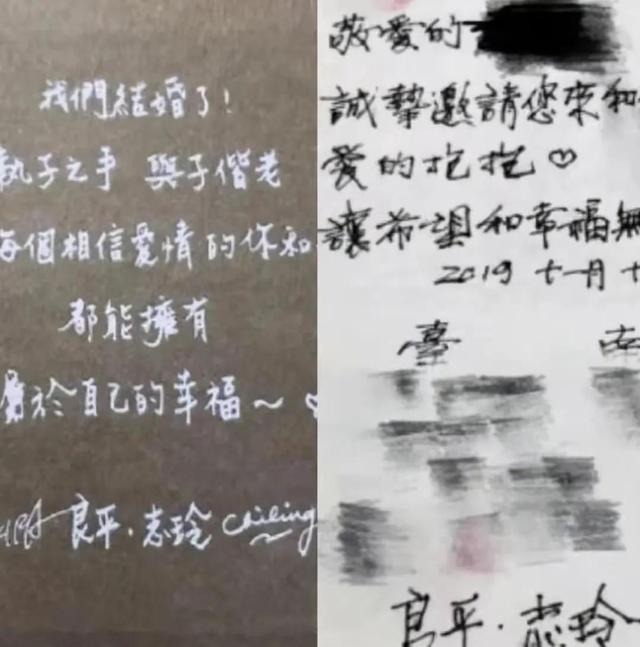 我們結婚了!
執子之手 與子偕老
每個相信愛情的你和
都能擁有
屬於自己的幸福~♡
良平.志玲 Chiling
敬愛的
誠摯邀請您來和
愛的抱抱♡
讓希望和幸福無
2019 十一月十
臺 南
良平.志玲